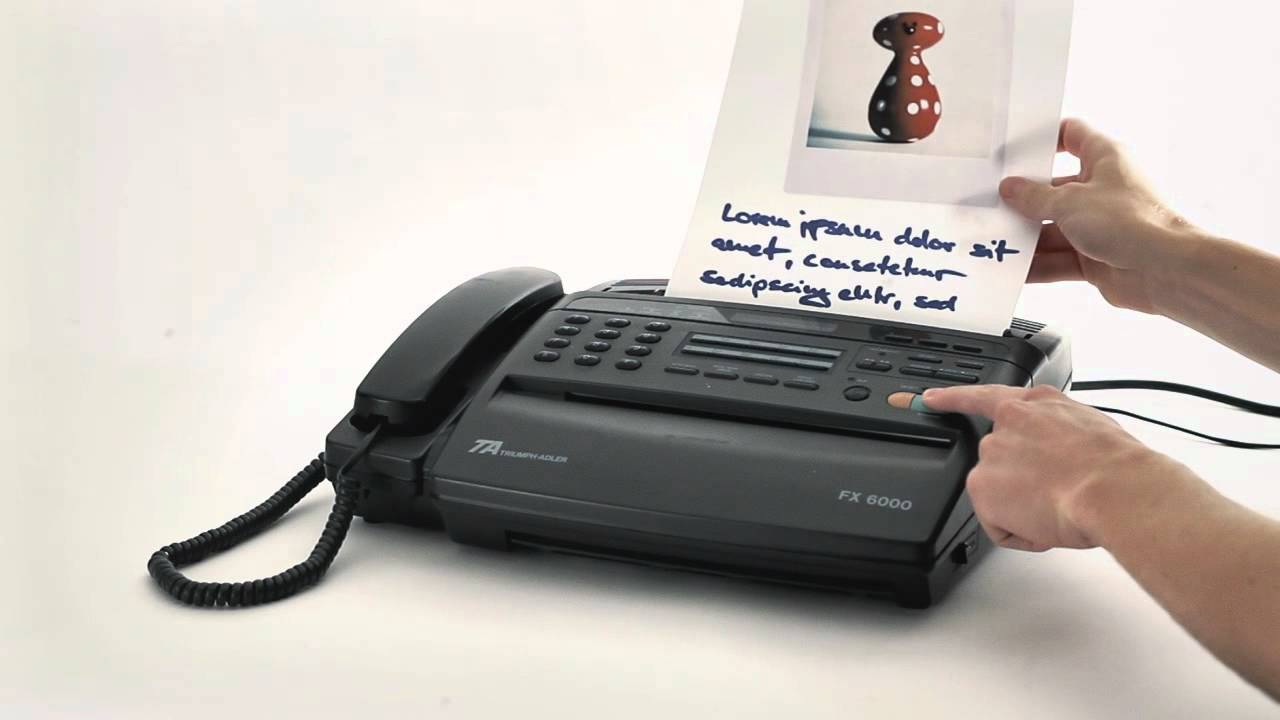 Lorem ipsum dolor sit
amet, consetetur
sadipscing elitr, sed
TA TRIUMPH-ADLER
FX 6000